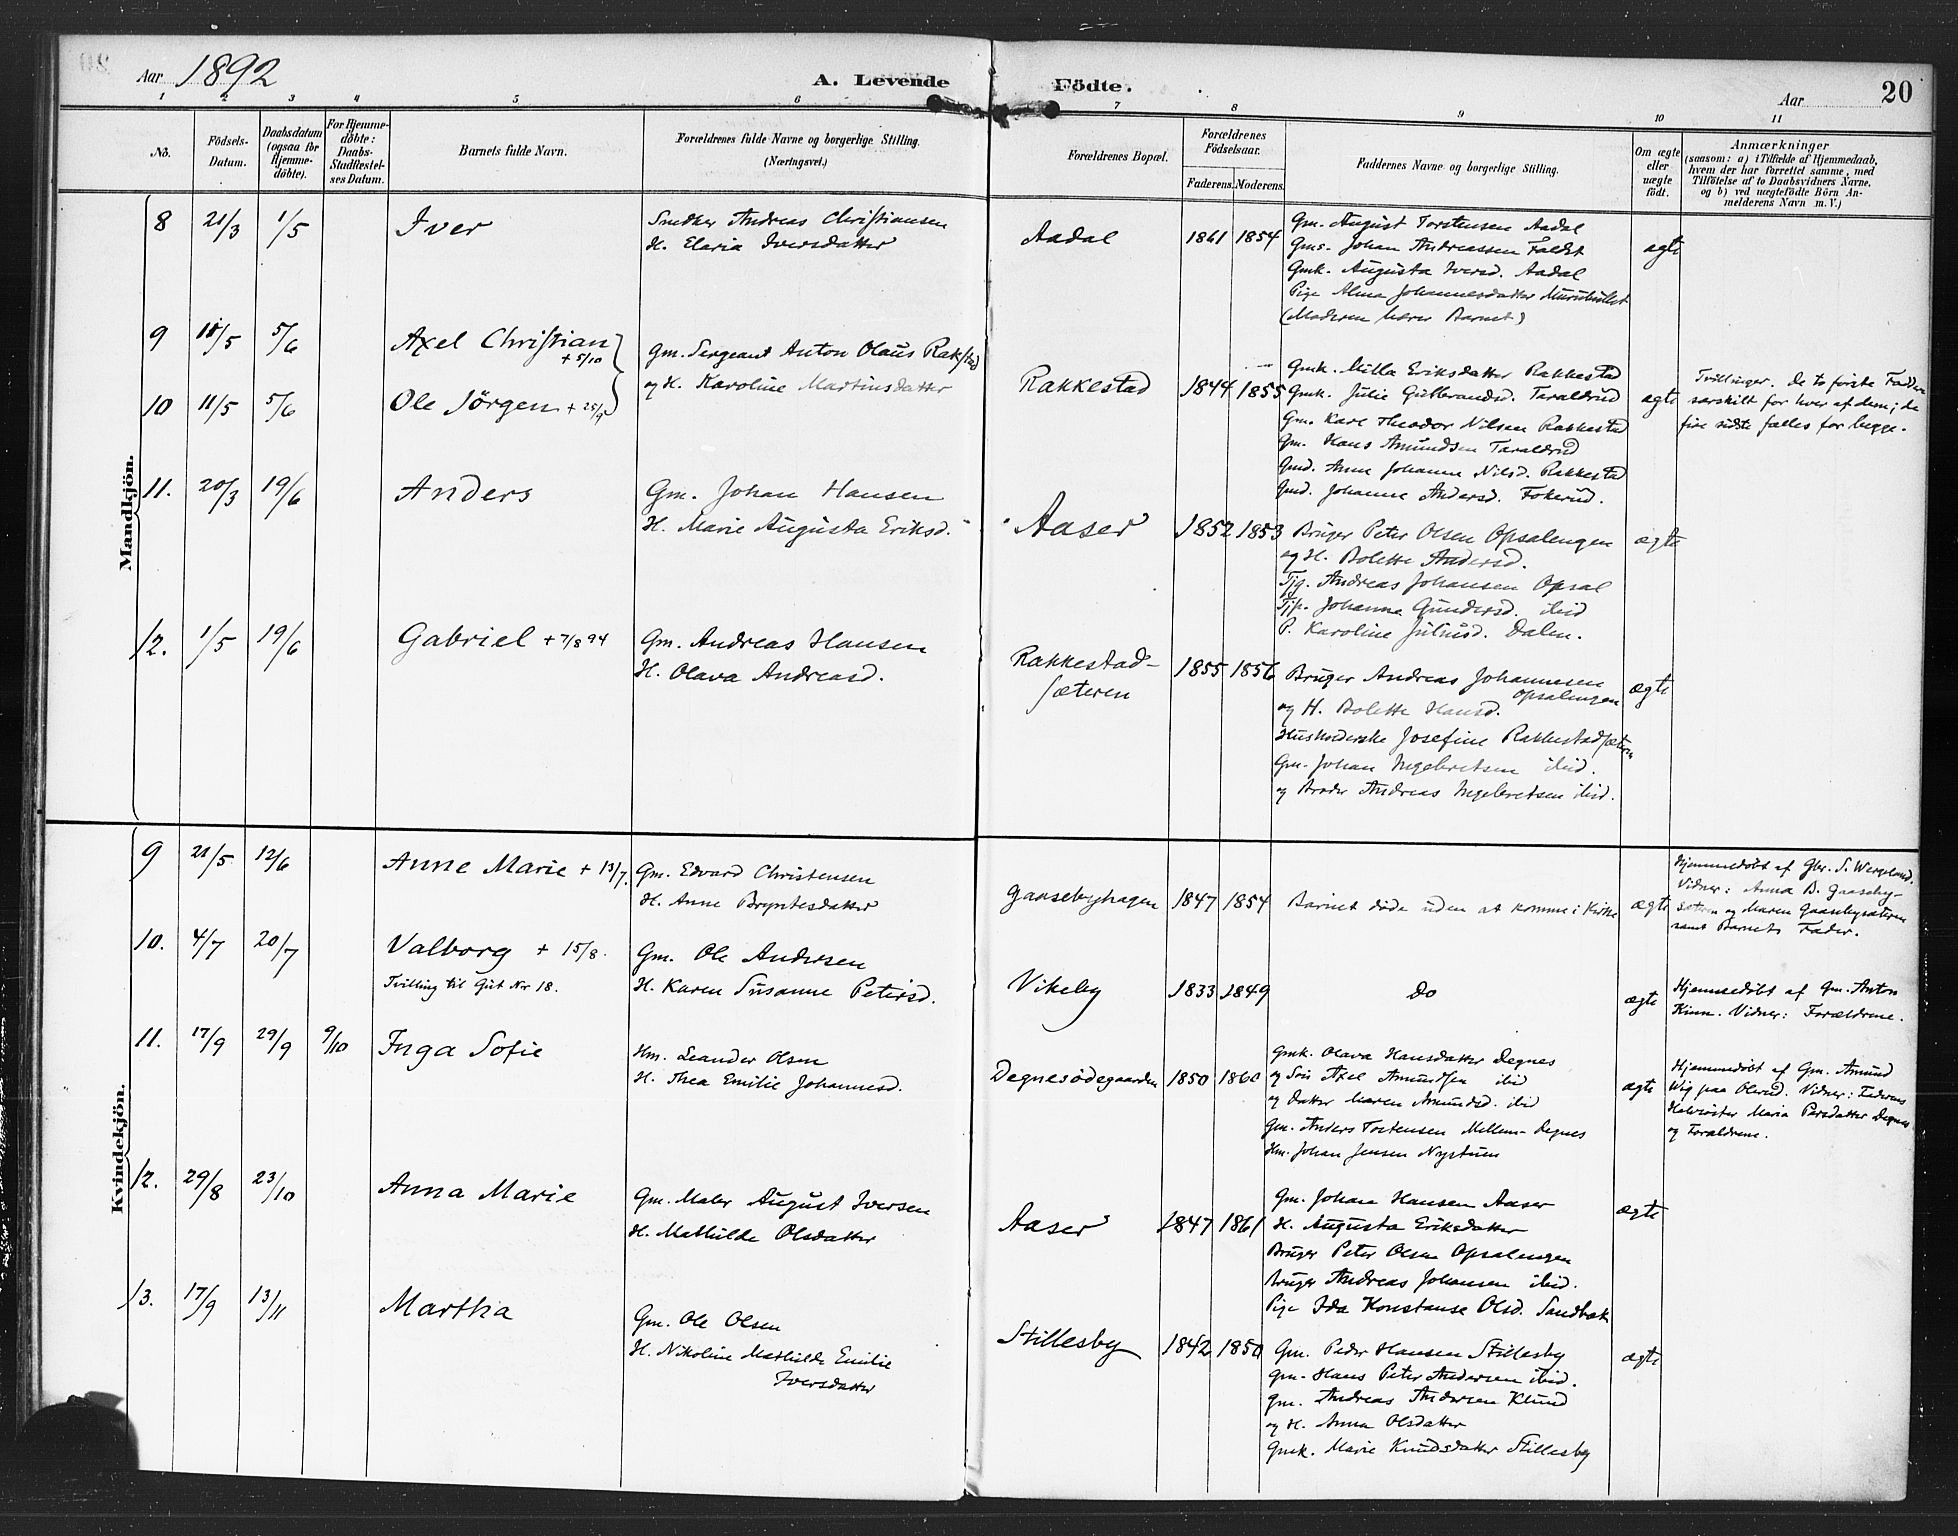 Aar 1892
A. Levende
Födte.
Aar
20
1 2 3 4 5 6 7 8 9 10 11
No.
Födsels-
Datum.
Daabsdatum
(ogsaa for
Hjemme-
döbte).
For Hjemme-
döbte:
Daabs-
Stadfæstel-
ses Datum.
Barnets fulde Navn.
Forældrenes fulde Navne og borgerlige Stilling.
(Næringsvei.)
Forældrenes Bopæl.
Forældrenes
Födselsaar.
Faderens. Moderens.
Faddernes Navne og borgerlige Stilling.
Om ægte
eller
uægte
födt.
Anmærkninger
(saasom: a) i Tilfælde af Hjemmedaab,
hvem der har forrettet samme, med
Tilföielse af to Daabsvidners Navne,
og b) ved uægtefödte Börn An-
melderens Navn m. V.)
Mandkjön.
8 21/3 1/5 Iver
Snedker Andreas Christiansen
H. Elaria Iversdatter
Aadal 1861 1854
Gm. August Torstensen Aadal
Gms. Johan Andreassen Faldet
Gmk. Augusta Iversd. Aadal
Pige Alma Johannesdatter
(Moderen bærer Barnet)
ægte
9 11/5 5/6 Axel Christian
+ 5/10
10 11/5 5/6 Ole Jörgen
Gm. Sergeant Anton Olaus Rakstad
og H. Karoline Martinsdatter
Rakkestad 1844 1855
Gmk. Milla Eriksdatter Rakkestad
Gmk. Julie Gulbrandsd. Taraldrud
Gm. Karl Theodor Nilsen Rakkestad
Gm. Hans Amundsen Taraldrud
Gmd. Anne Johanne Nilsd. Rakkestad
Gmd. Johanne Andersd. Fokerud.
ægte
Tvillinger. De to første Faddere
særskilt for hver af dem; de
fire sidste fælles for begge.
11. 20/3 19/6 Anders
Gm. Johan Hansen
H. Marie Augusta Eriksd.
Aaser 1852 1853
Bruger Peter Olsen Opsalengen
og H. Bolette Andersd.
Tjg. Andreas Johansen Opsal
Tjp. Johanne Gundersd. ibid
P. Karoline Juliusd. Dalen.
ægte
12. 1/5 19/6 Gabriel + 7/8 94
Gm. Andreas Hansen
H. Olava Andreasd.
Rakkestad-
sæteren
1855 1856
Bruger Andreas Johannesen
Opsalengen
og H. Bolette Hansd.
Husholderske Josefine Rakkestadsæteren
Gm. Johan Ingebretsen ibid.
og Broder Andreas Ingebretsen ibid.
ægte
Kvindekjön.
9 21/5 12/6 Anne Marie + 13/7.
Gm. Edvard Christensen
H. Anne Bryntesdatter
Gaasebyhagen 1847 1854
Barnet døde uden at komme i Kirke
ægte
Hjemmedöbt af Gbr. S. Wergeland.
Vidner: Anna B. Gaaseby-
sæteren og Maren Gaasbysæteren
samt Barnets Fader.
10. 4/7 20/7 Valborg + 15/8.
Tvilling til Gut Nr 18.
Gm. Ole Andersen
H. Karen Susanne Petersd.
Vikeby 1833 1849
Do
ægte
Hjemmedöbt af Gm. Anton
Kinn. Vidner: Forældrene.
11. 17/9 29/9 9/10 Inga Sofie
Hm. Leander Olsen
H. Thea Emilie Johannesd.
Degnesödegaarden 1850 1860
Gmk. Olava Hansdatter Degnes
og Søn Axel Amundsen ibid
og Datter Maren Amundsd. ibid
Gm. Anders Torstensen Mellem-Degnes
Hm. Johan Jensen Nystuen
ægte
Hjemmedöbt af Gm. Amund
Wig paa Olerud. Vidner: Faderens
Halvsöster Maria Parsdatter Degnes
og Forældrene.
12. 29/8 23/10 Anna Marie
Gm. Maler August Iversen
H. Mathilde Olsdatter
Aaser 1847 1861
Gm. Johan Hansen Aaser
H. Augusta Eriksdatter
Bruger Peter Olsen Opsalengen
Bruger Andreas Johansen ibid.
Pige Ida Konstanse Olsd. Sandbæk
ægte
13. 17/9 13/11 Martha
Gm. Ole Olsen
H. Nikoline Mathilde Emilie
Iversdatter
Stillesby 1842 1850
Gm. Peder Hansen Stillesby
Gm. Hans Peter Andersen ibid.
Gm. Andreas Andersen Klund
og H. Anna Olsdatter
Gmk. Marie Knudsdatter Stillesby
ægte